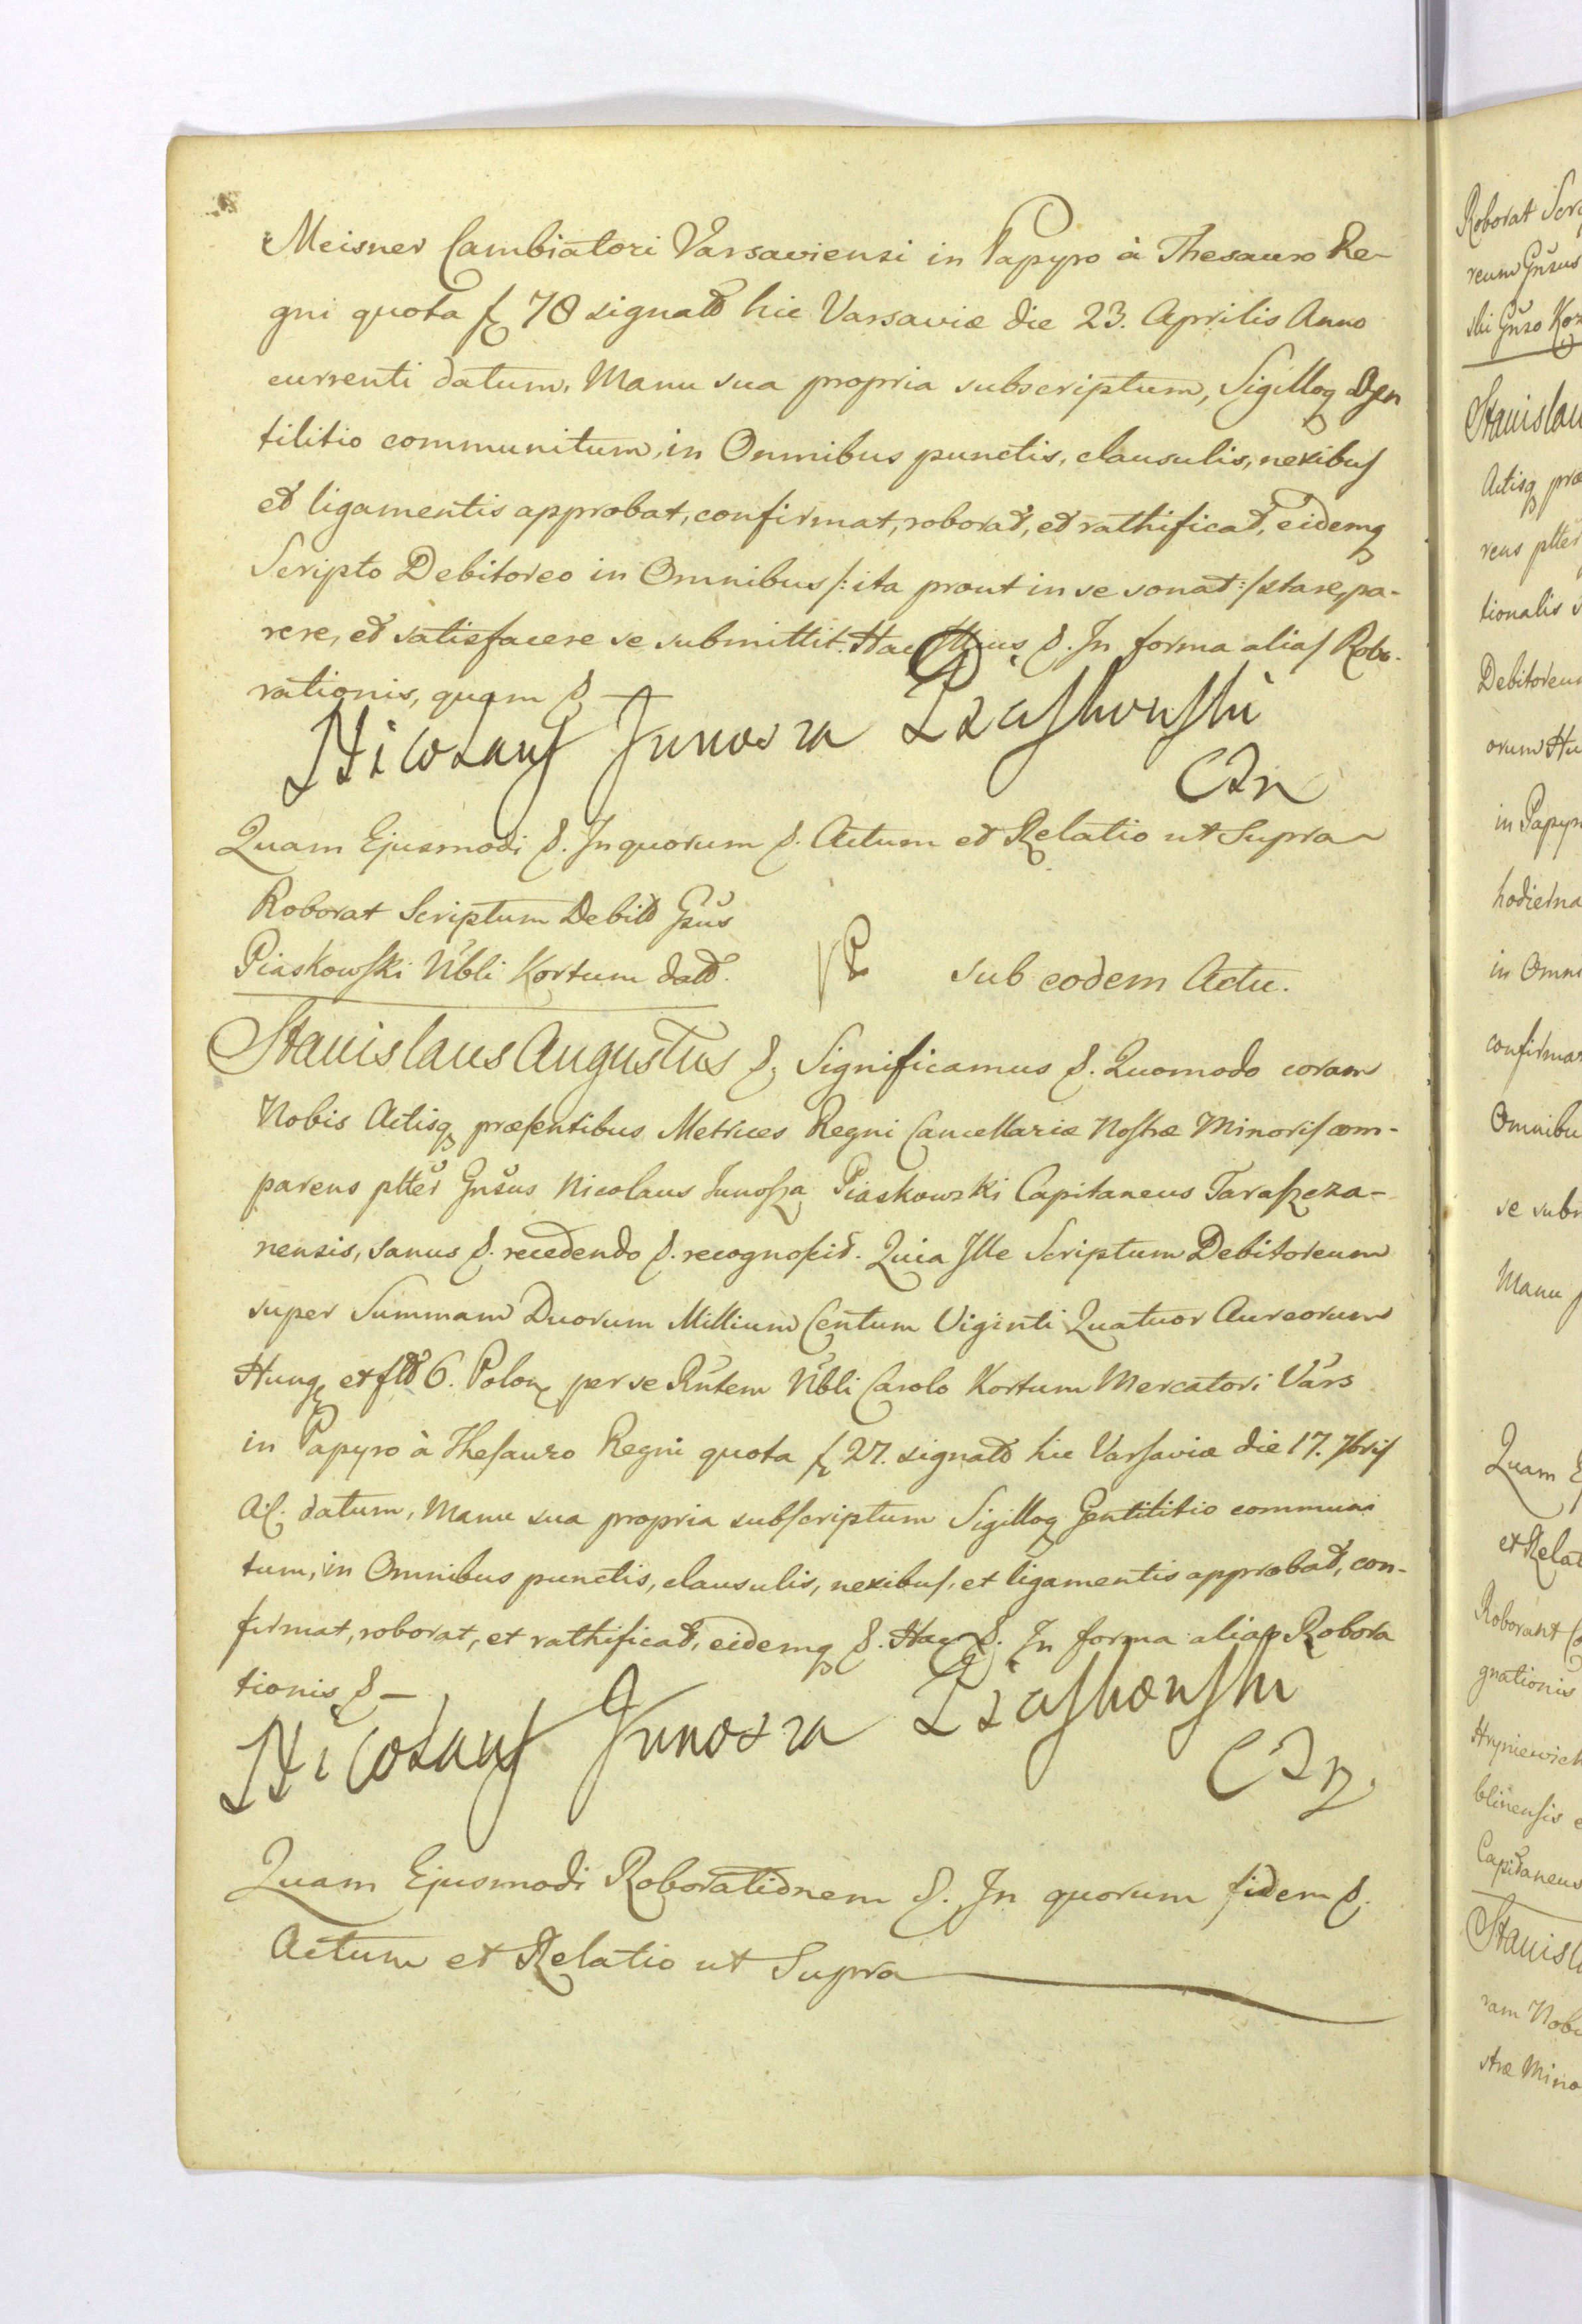 Meisner Cambiatori Varsaviensi in Papyro à Thesauro Re-
gni quota f 78 signato hic Varsaviæ die 23. Aprilis Anno
currenti datum, Manu sua propria subscriptum, Sigilloq Gen
tilitio communitum, in Omnibus punctis, clausulis, nexibus
et ligamentis approbat, confirmat, roborat, et rathificat, eidemq
Scripto Debitoreo in Omnibus /: ita prout in se sonat :/ stare, pa-
rere, et satisfacere se submittit. Hac In forma alias Robo-
rationis, quam
Nicolaus Junosza Piaskowski
Quam Ejusmodi &. In quorum &. Actum et Relatio ut Supra
Roborat Scriptum Debito Gnsus
Piaskowski Nbli Kortum dato.
sub eodem Actu.
Stanislaus Augustus &. Significamus &. Quomodo coram
Nobis Actisq præsentibus Metrices Regni Cancellariæ Nostræ Minoris com-
parens plter Gnsus Nicolaus Junosza Piaskowski Capitaneus Taraszcza-
nensis, sanus &. recedendo &. recognoscit. Quia Ille Scriptum Debitoreum
super Summam Duorum Millium Centum Viginti Quatuor Aureorum
Hung et flo 6. Polon per se Rntem Nbli Carolo Kortum Mercatori Vars
in Papyro à Thesauro Regni quota f 27. signato hic Varsaviæ die 17. 7bris
datum, Manu sua propria subscriptum Sigilloq Gentilitio communi
tum, in Omnibus punctis, clausulis, nexibus, et ligamentis approbat, con-
firmat, roborat, et rathificat, eidemq &. Hac &. In forma alias Robora
tionis &
Nicolaus Junosza Piaskowski
Quam Ejusmodi Roborationem &. In quorum fidem &.
Actum et Relatio ut Supra